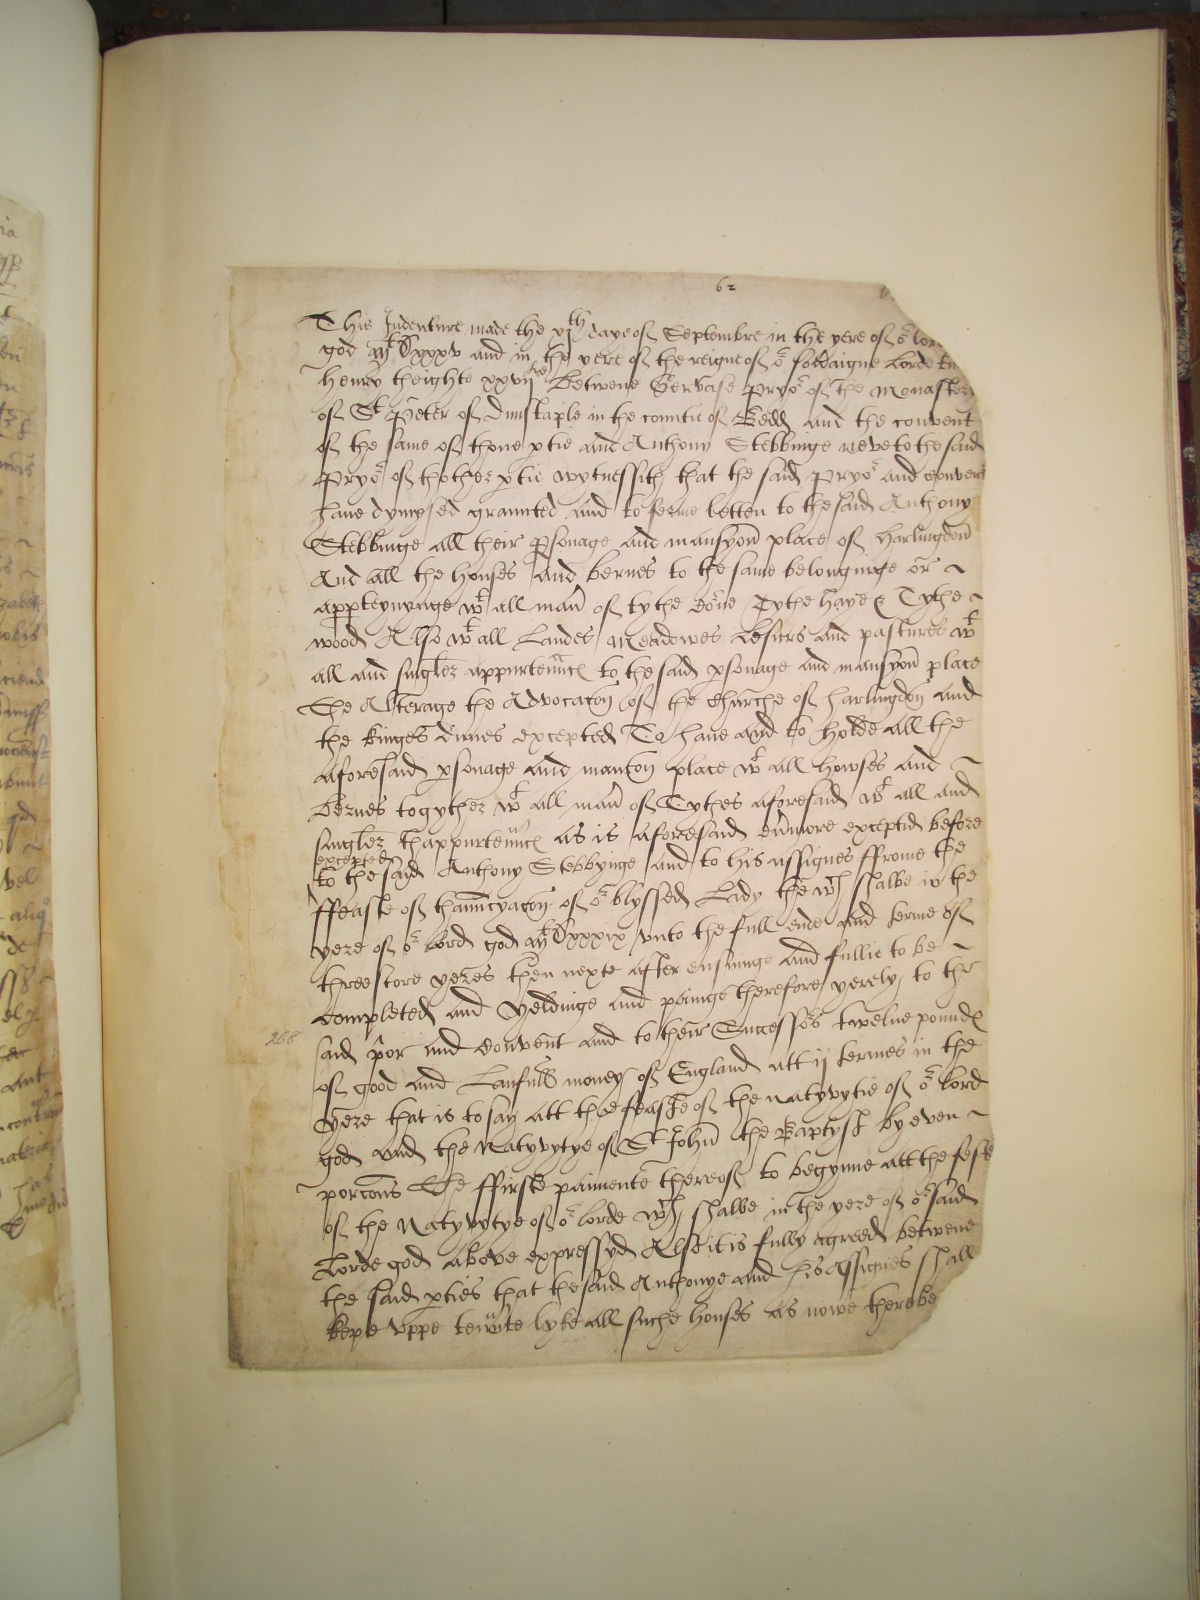 62
This Indenture made the xjth daye of Septembre in the yere of or lor
god Mt Dxxxv and in the yere of the reigne of or soveraigne lorde kn
Henry theighte xxvijth Betwene Gervase Pryor of the Monastery
of St Peter of Dunstaple in the countie of Bedd and the convent
of the same of thone ptie and Anthony Stebbinge neve to the said
Pryor of thother ptie wytnessith that the said Pryor and convent
have dymysed graunted and to ferme letten to the said Anthony
Stebbinge all their psonage and mansyon place of Harlingdon
And all the houses and bernes to the same belonginge or
appteynynge wt all man of tythe Corne Tythe Haye & Tythe
wood Also wt all Landes Meadowes Lesurs and pastures wt
all and singler appurtennces to the said psonage and mansyon place
The Alterage the Advocacon of the Churche of Harlingdon and
the kinges dimes excepted To have and to holde all the
aforesaid psonage and mancon place wt all howses and
Bernes togyther wt all man of Tythes aforesaid wt all and
singler thappurtennces as is aforesaid evmore exceptid before
excepted
to the said Anthony Stebbynge and to his assignes ffrome the
ffeaste of thanncyacon of or blyssed Lady the wch shalbe in the
yere of or lord god Mt Dxxxix unto the full ende and terme of
threescore yeres then nexte after ensuinge and fullie to be
completed and Yeldinge and painge therefore yerely to the
268
said pror and Convent and to their Successors twelve poundes
of good and Laufull money of England att ij termes in the
yere that is to say att the feaste of the natyvytie of or lord
god and the Natyvytye of St John the Baptyst by even
porcons The ffirste paimente thereof to begynne att the feste
of the Natyvytye of or lorde wch shalbe in the yere of or said
Lorde god above expressyd Also it is fully agreed betwene
the said pties that the said Anthonye and his Assignes shall
kepe uppe tennte lyke all suche houses as nowe there be